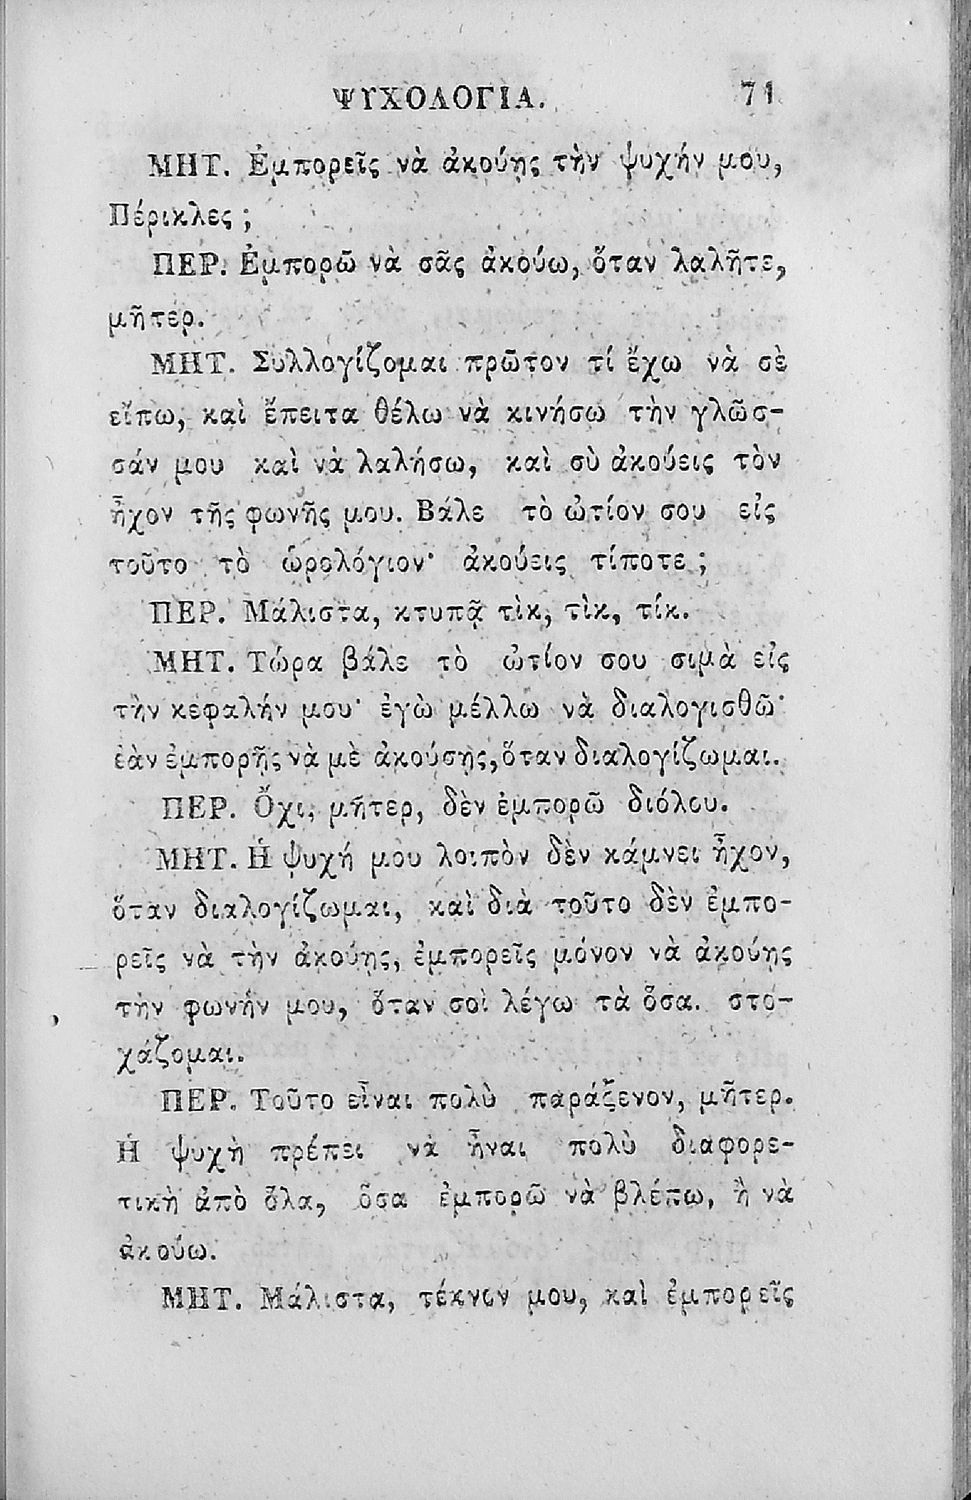 ΨΥΧΟΛΟΓΙΑ. 71
ΜΗΤ. Ἐμπορεῖς νὰ ἀκούῃς τὴν ψυχήν μου,
Πέρικλες ;
ΠΕΡ. Ἐμπορῶ νὰ σᾶς ἀκούω, ὅταν λαλῆτε,
μῆτερ.
ΜΗΤ. Συλλογίζομαι πρῶτον τί ἔχω νὰ σὲ
εἴπω, καὶ ἔπειτα θέλω νὰ κινήσω τὴν γλῶσ-
σάν μου καὶ νὰ λαλήσω, καὶ σὺ ἀκούεις τὸν
ἦχον τῆς φωνῆς μου. Βάλε τὸ ὠτίον σου εἰς
τοῦτο τὸ ὡρολόγιον· ἀκούεις τίποτε ;
ΠΕΡ. Μάλιστα, κτυπᾷ τὶκ, τὶκ, τίκ.
ΜΗΤ. Τώρα βάλε τὸ ὠτίον σου σιμὰ εἰς
τὴν κεφαλήν μου· ἐγὼ μέλλω νὰ διαλογισθῶ·
ἐὰν ἐμπορῇς νὰ μὲ ἀκούσῃς, ὅταν διαλογίζωμαι.
ΠΕΡ. Ὄχι, μῆτερ, δὲν ἐμπορῶ διόλου.
ΜΗΤ. Ἡ ψυχή μου λοιπὸν δὲν κάμνει ἦχον,
ὅταν διαλογίζωμαι, καὶ διὰ τοῦτο δὲν ἐμπο-
ρεῖς νὰ τὴν ἀκούῃς, ἐμπορεῖς μόνον νὰ ἀκούῃς
τὴν φωνήν μου, ὅταν σοὶ λέγω τὰ ὅσα. στο-
χάζομαι.
ΠΕΡ. Τοῦτο εἶναι πολὺ παράξενον, μῆτερ.
Ἡ ψυχὴ πρέπει νὰ ἦναι πολὺ διαφορε-
τικὴ ἀπὸ ὅλα, ὅσα ἐμπορῶ νὰ βλέπω, ἢ νὰ
ἀκούω.
ΜΗΤ. Μάλιστα, τέκνον μου, καὶ ἐμπορεῖς